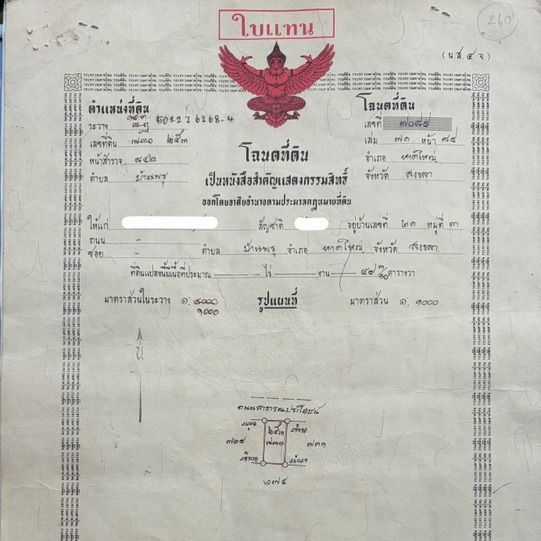 ใบแทน
260
(น.ส.๔ จ.)
ตำแหน่งที่ดิน
ระวาง 5022 I 6268-4
เลขที่ดิน ๗๓๐ ๒๕๓
หน้าสำรวจ
ตำบล บ้านพรุ
โฉนดที่ดิน
เลขที่
เล่ม ๗๑ หน้า ๘๕
อำเภอ หาดใหญ่
จังหวัด สงขลา
โฉนดที่ดิน
เป็นหนังสือสำคัญแสดงกรรมสิทธิ์
ออกโดยอาศัยอำนาจตามประมวลกฎหมายที่ดิน
ให้แก่ สัญชาติ อยู่บ้านเลขที่ ๒๑ หมู่ที่ ๓
ถนน -
ซอย - ตำบล บ้านพรุ อำเภอ หาดใหญ่ จังหวัด สงขลา
ที่ดินแปลงนี้มีเนื้อที่ประมาณ - ไร่ - งาน ตารางวา
มาตราส่วนในระวาง ๑: ๔๐๐๐ รูปแผนที่ มาตราส่วน ๑: ๑๐๐๐
๑๐๐๐
น
ถนนสาธารณประโยชน์
๒๕๓
๗๒๙ ๗๓๐ ๗๓๑
๖๗๕